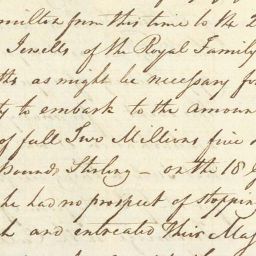 million from this time to the 2
Jewells of the Royal Family
ths as might be necessary for
ty to embark to the amoun
of full Two Millions five
Pounds Sterling – on the 18
he had no prospect of stoppin
and entreated Their Maj